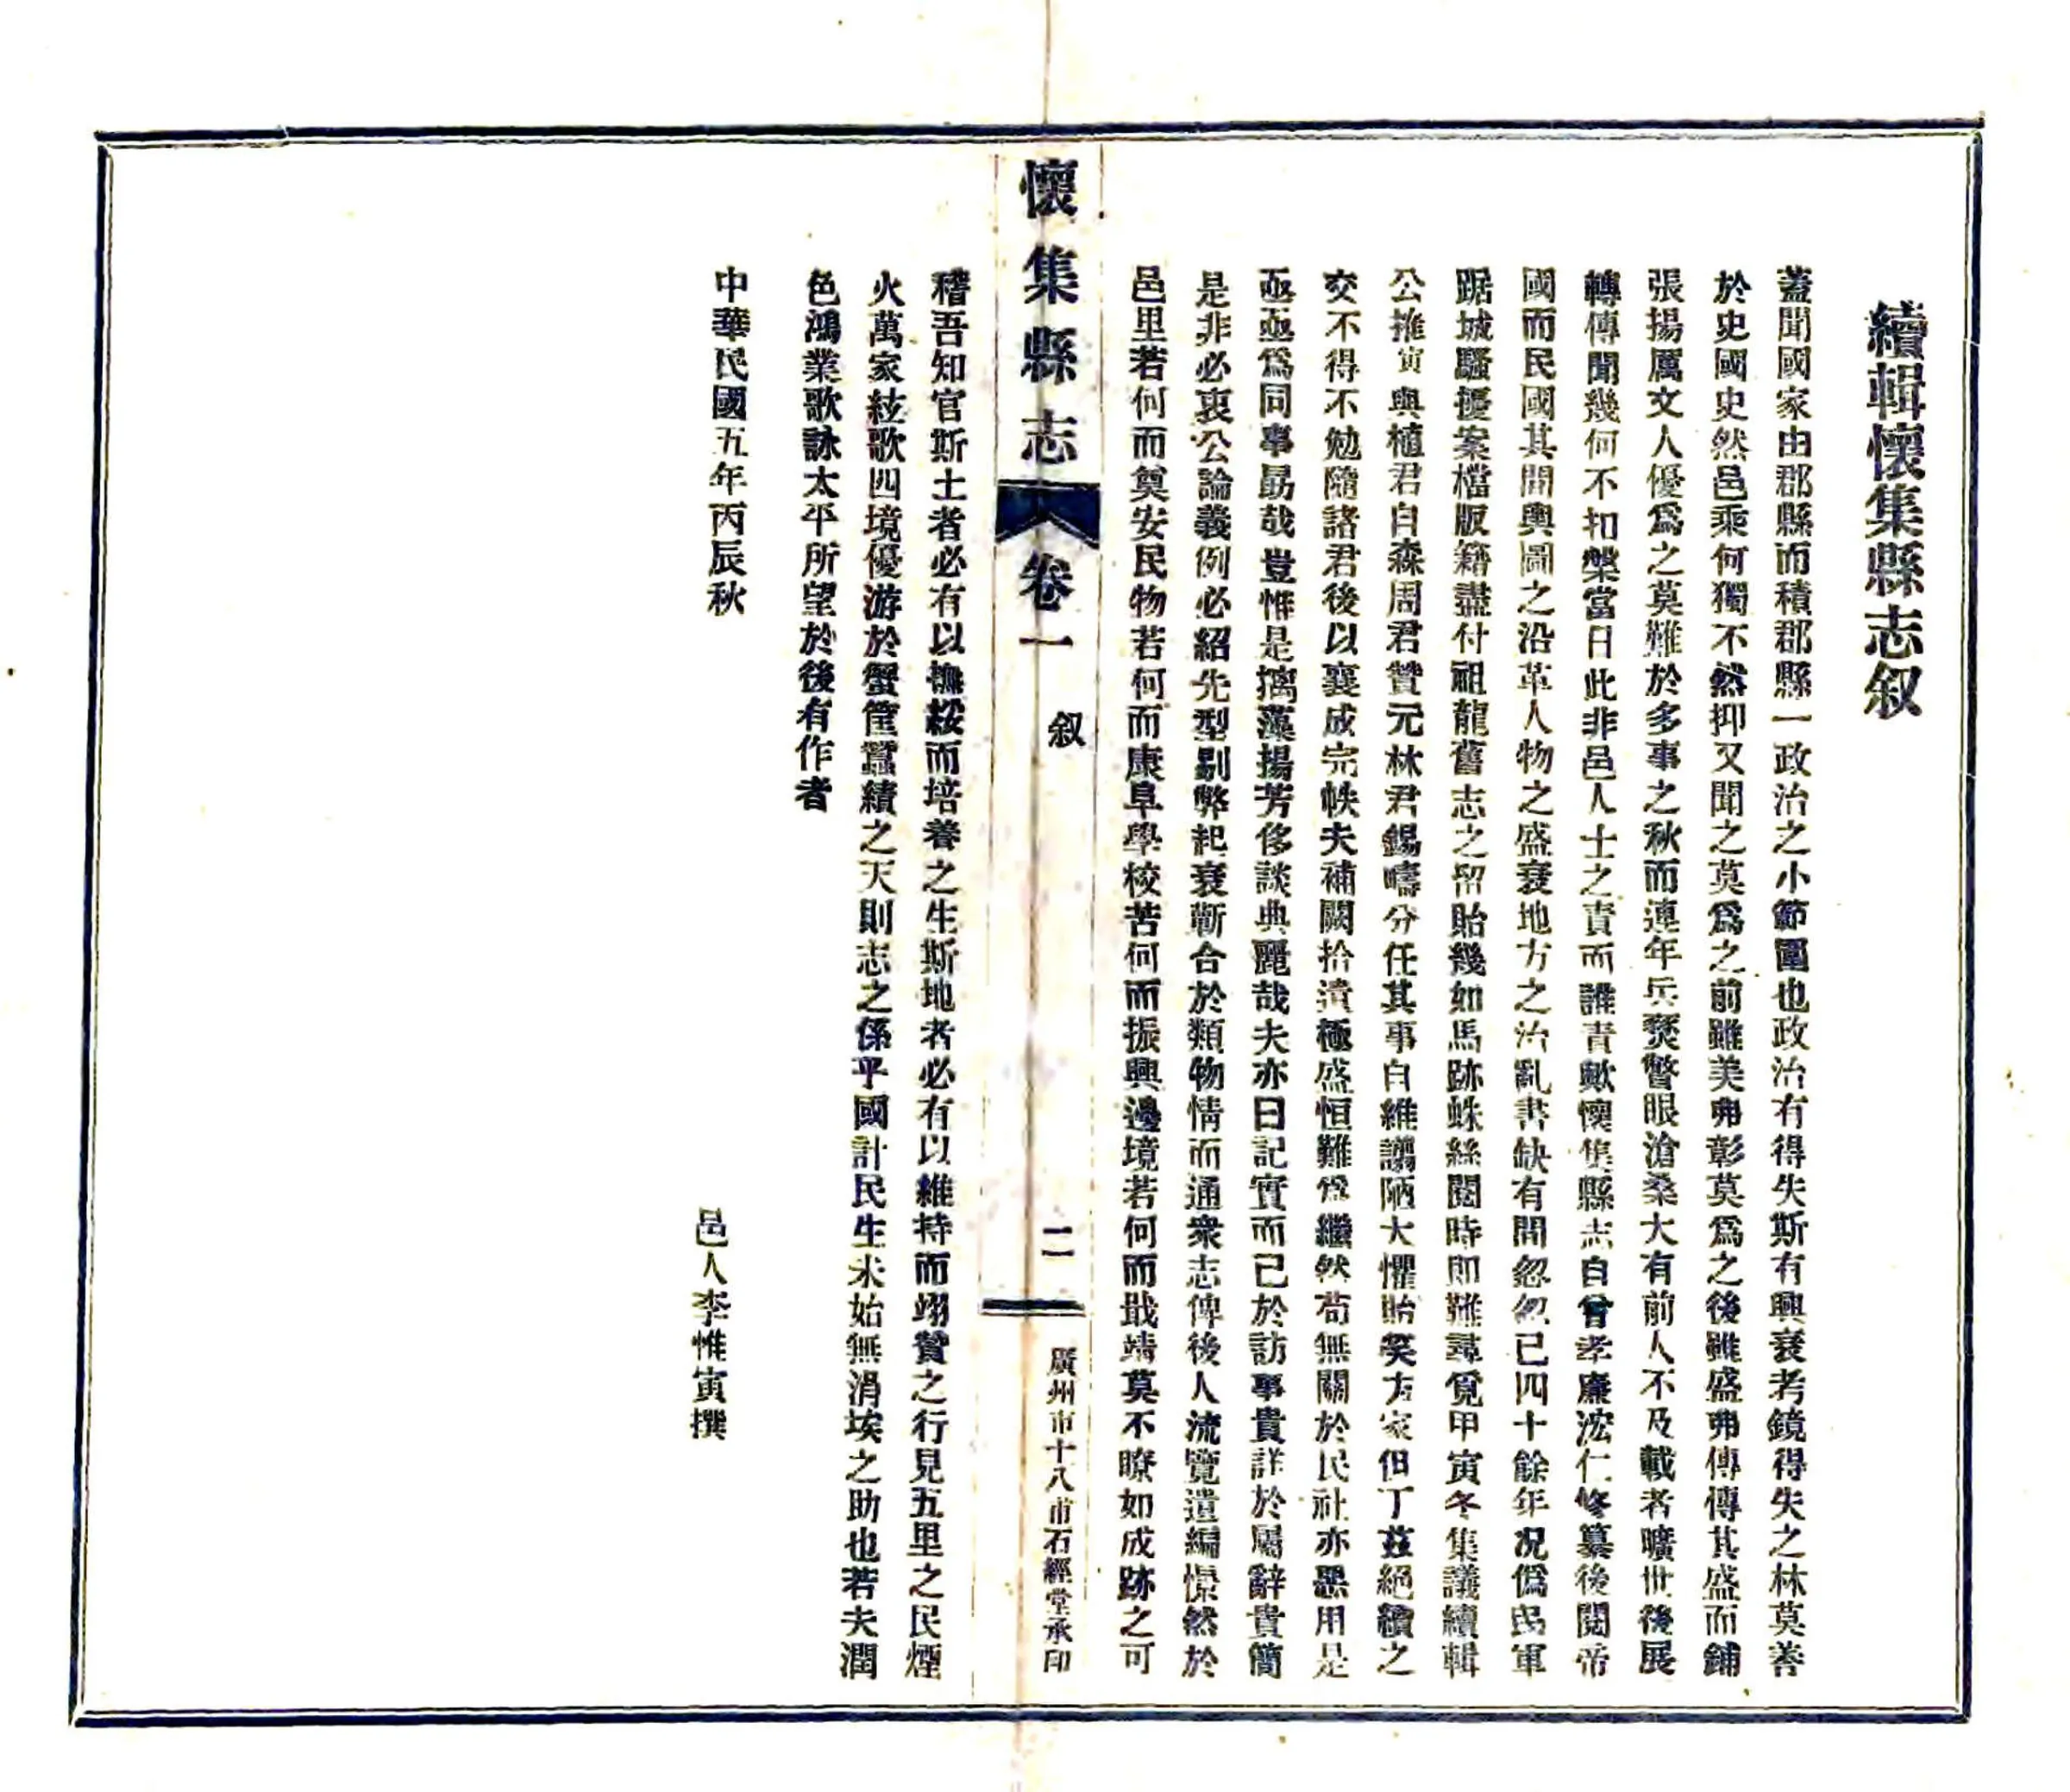 續輯懷集縣志叙
蓋聞國家由郡縣而積郡縣一政治之小範圍也政治有得失斯有興衰考鏡得失之林莫善
於史國史然邑乘何獨不然抑又聞之莫爲之前雖美弗彰莫爲之後雖盛弗傳傳其盛而鋪
張揚厲文人優爲之莫難於多事之秋而連年兵燹瞥眼滄桑大有前人不及載者曠世後展
轉傳聞幾何不扣槃當日此非邑人士之責而誰責歟懷集縣志自曾孝廉浤仁修纂後閱帝
國而民國其間輿圖之沿革人物之盛衰地方之治亂書缺有間忽忽已四十餘年况僞民軍
踞城騷擾案檔版籍盡付祖龍舊志之留貽幾如馬跡蛛絲閱時即難尋覓甲寅冬集議續輯
公推寅與植君自森周君贊元林君錫疇分任其事自維譾陋大懼貽笑方家但丁茲絕續之
交不得不勉隨諸君後以襄成完帙夫補闕拾遺極盛恒難爲繼然苟無關於民社亦惡用是
亟亟爲同事勗哉豈惟是摛藻揚芳侈談典麗哉夫亦曰記實而已於訪事貴詳於屬辭貴簡
是非必衷公論義例必紹先型剔弊起衰蘄合於類物情而通衆志俾後人流覽遺編憬然於
邑里若何而奠安民物若何而康阜學校若何而振興邊境若何而戢靖莫不瞭如成跡之可
懷集縣志 卷一 叙 二 廣州市十八甫石經堂承印
稽吾知官斯土者必有以撫綏而培養之生斯地者必有以維持而翊贊之行見五里之民煙
火萬家絃歌四境優游於蟹筐蠶績之天則志之係乎國計民生未始無涓埃之助也若夫潤
色鴻業歌詠太平所望於後有作者
中華民國五年丙辰秋
邑人李惟寅撰